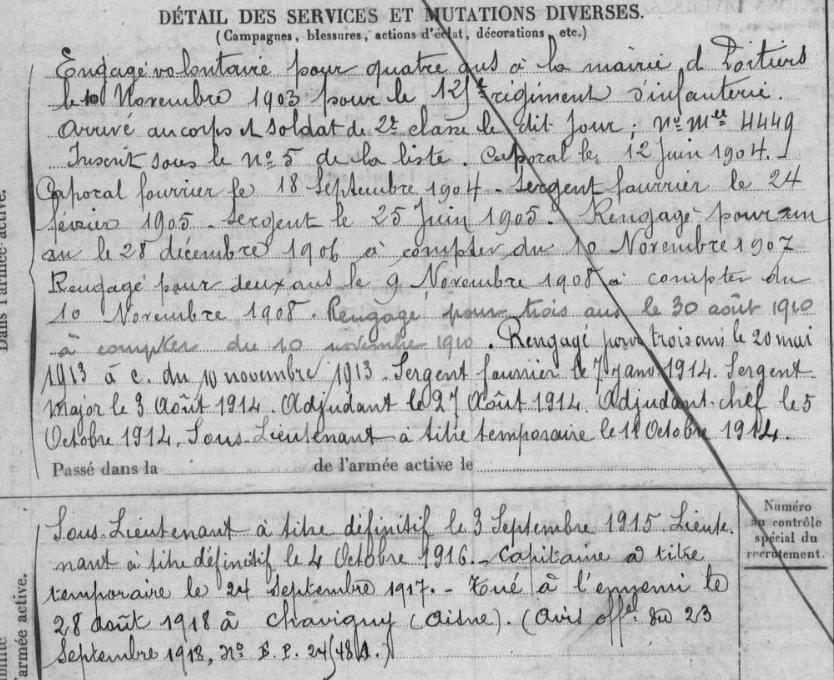 DÉTAIL DES SERVICES ET MUTATIONS DIVERSES.
(Campagnes, blessures, actions d'éclat, décorations, etc.)
Engagé volontaire pour quatre ans à la mairie d Poitiers
le 10 Novembre 1903 pour le 125e régiment d'infanterie.
Arrivé au corps et soldat de 2e classe le dit jour; no mle 4449
Inscrit sous le no 5 de la liste. Caporal le 12 Juin 1904.
Caporal fourrier le 18 Septembre 1904 - Sergent fourrier le 24
février 1905 - Sergent le 25 Juin 1905. Rengagé pour un
an le 28 décembre 1906 à compter du 10 Novembre 1907
Rengagé pour deux ans le 9 Novembre 1908 à compter du
10 Novembre 1908. Rengagé pour trois ans le 30 août 1910
à compter du 10 novembre 1910. Rengagé pour trois ans le 20 mai
1913 à c. du 10 novembre 1913. Sergent fourrier le 7 janv 1914. Sergent-
major le 3 Août 1914. Adjudant le 27 Août 1914. Adjudant-chef le 5
Octobre 1914. Sous-Lieutenant à titre temporaire le 11 Octobre 1914.
Passé dans la de l'armée active le
Dans l'armée active.
Sous-Lieutenant à titre définitif le 3 Septembre 1915 Lieute-
nant à titre définitif le 4 Octobre 1916. - Capitaine à titre
temporaire le 24 Septembre 1917. - Tué à l'ennemi le
28 août 1918 à Chavigny (Aisne). (Avis offel du 23
Septembre 1918, no E. P. 24
Numéro
au contrôle
spécial du
recrutement.
l'armée active.